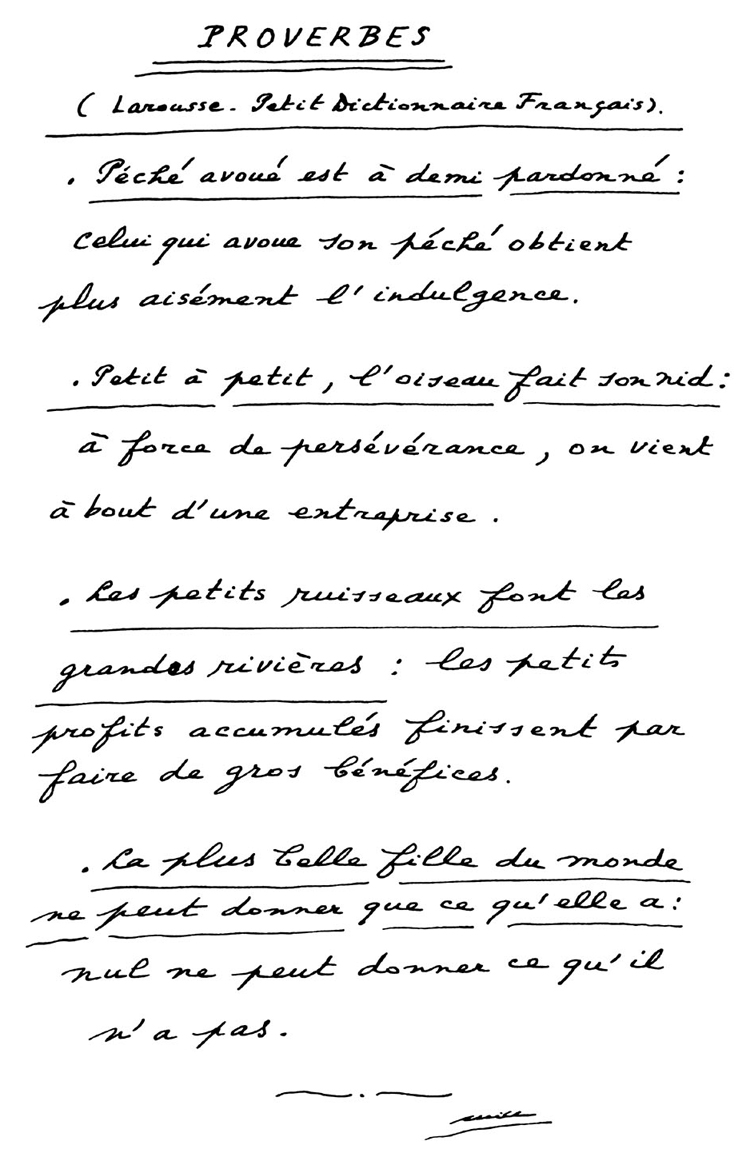 PROVERBES
( Larousse - Petit Dictionnaire Français).
. Péché avoué est à demi pardonné :
celui qui avoue son péché obtient
plus aisément l'indulgence.
. Petit à petit, l'oiseau fait son nid :
à force de persévérance, on vient
à bout d'une entreprise.
. Les petits ruisseaux font les
grandes rivières : les petits
profits accumulés finissent par
faire de gros bénéfices.
. La plus belle fille du monde
ne peut donner que ce qu'elle a :
nul ne peut donner ce qu'il
n'a pas.
suite